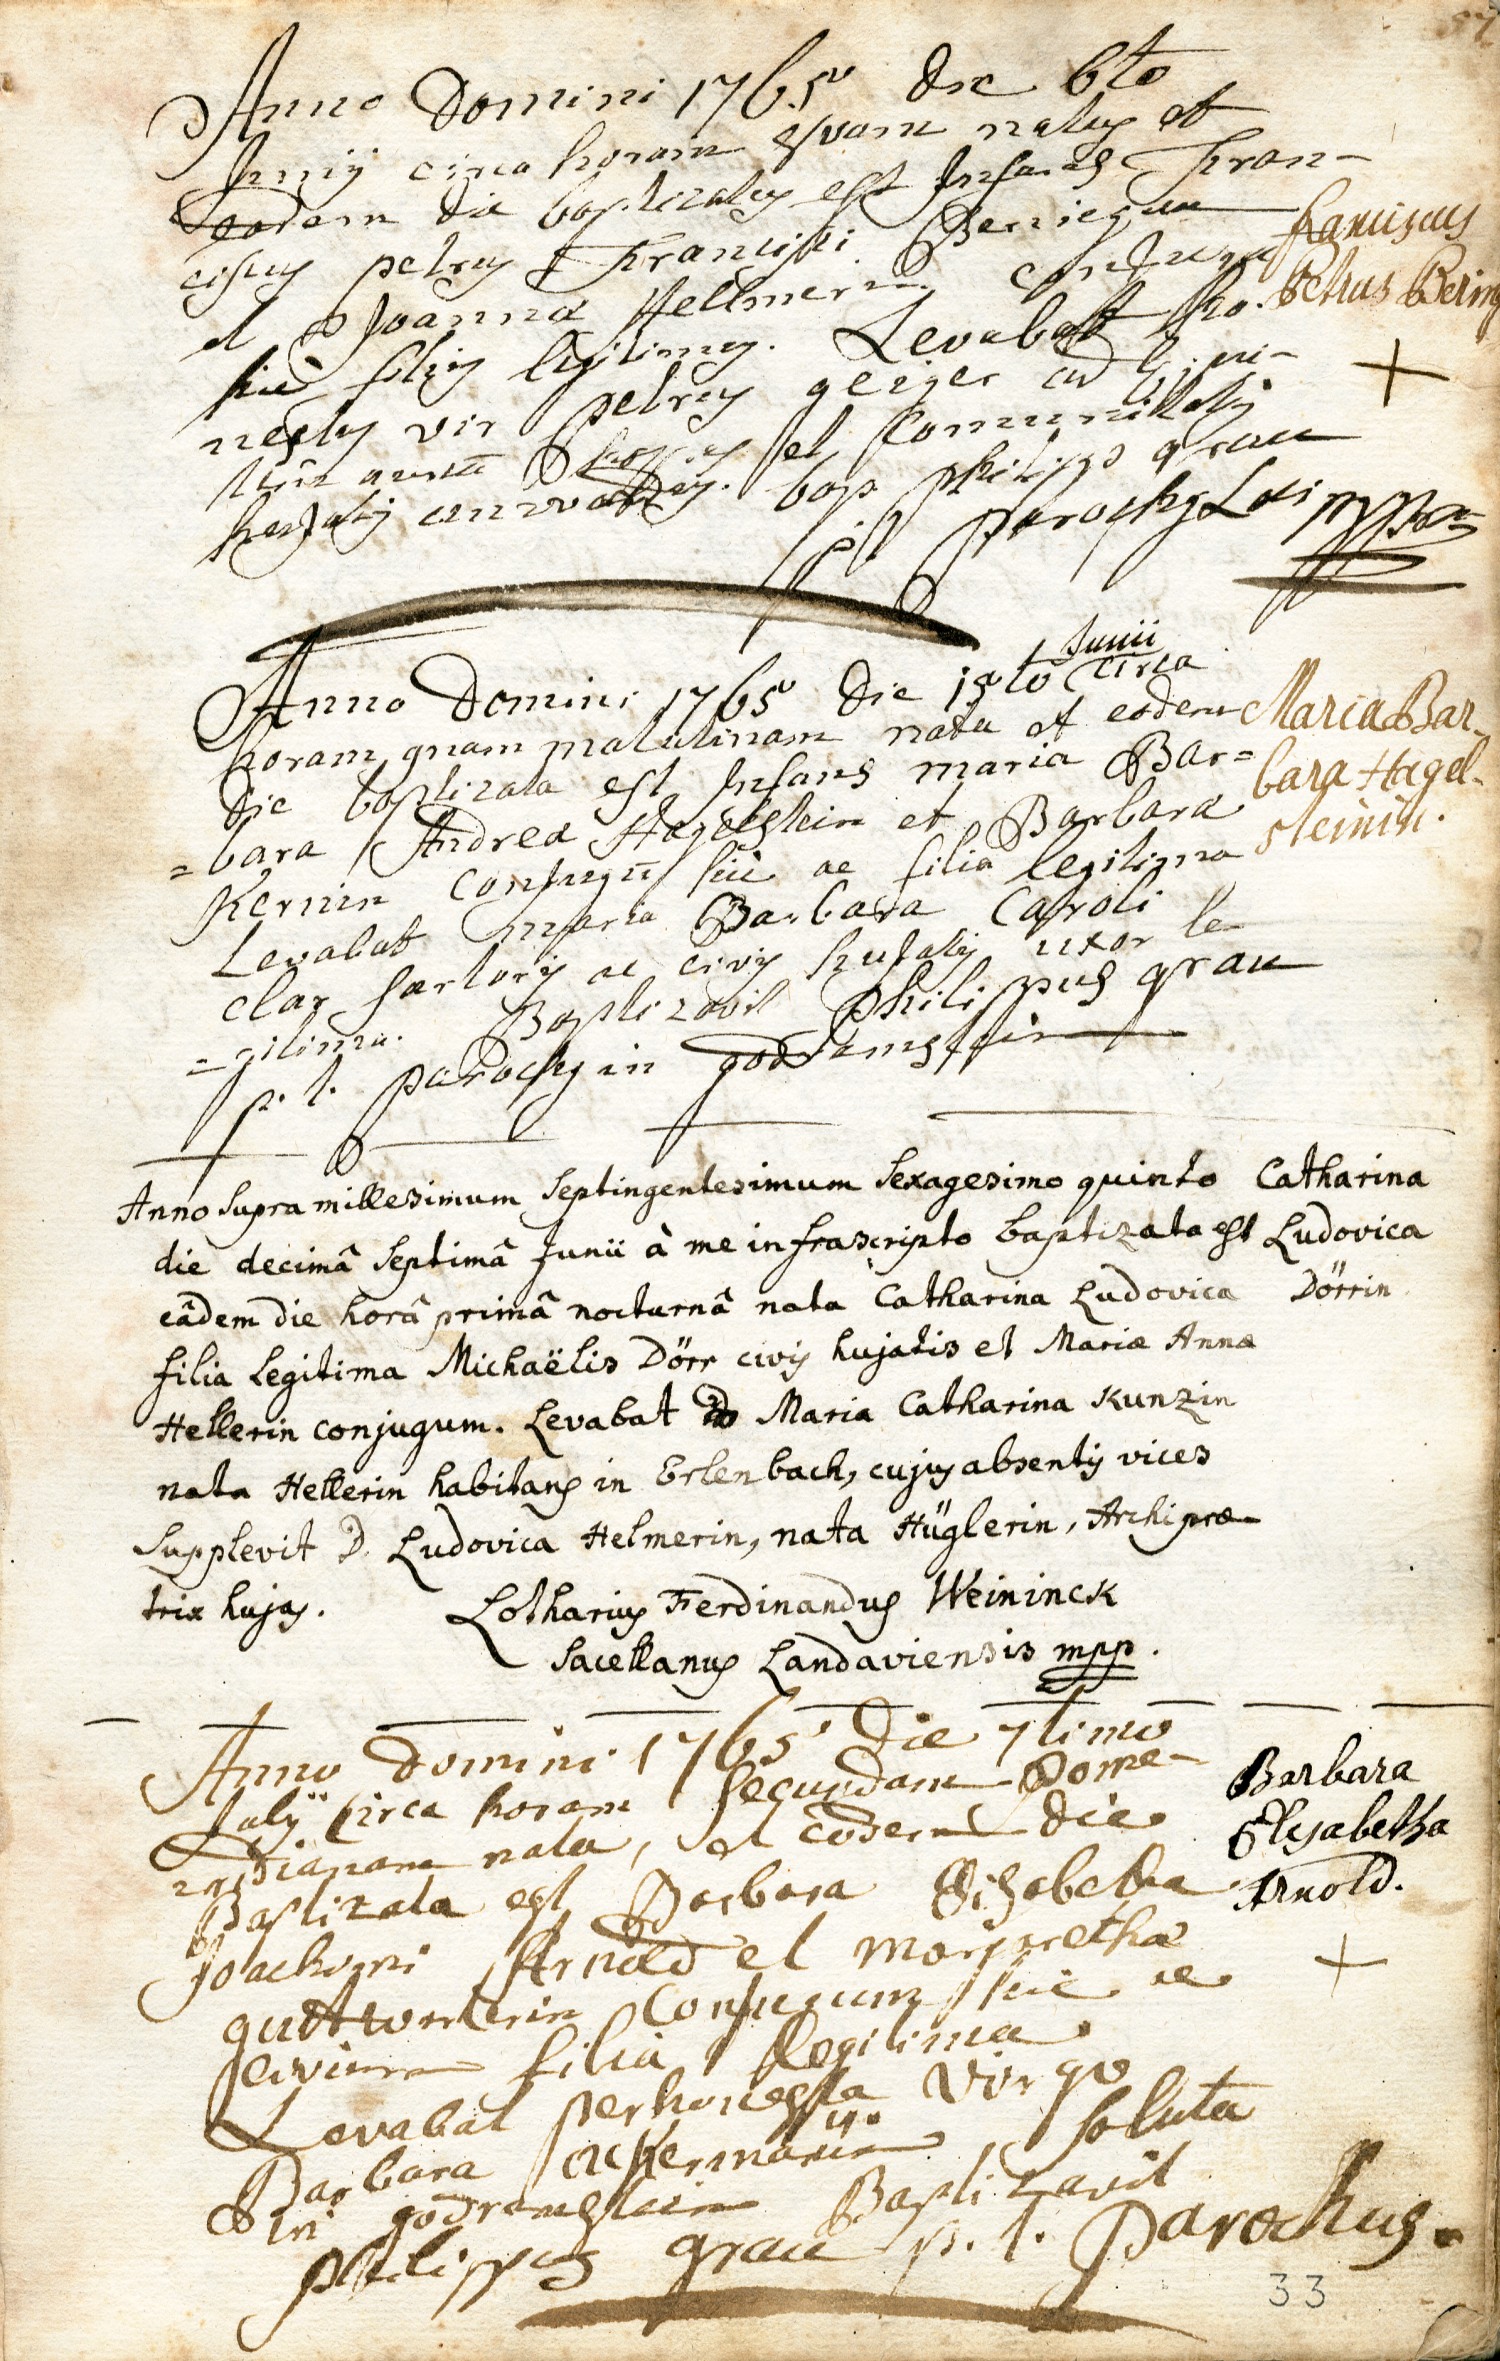 57
Anno Domini 1765 die 6to
Junij circa horam 8vam natus et
eodem die baptizatus est Infans Fran-
ciscus petrus Francisci Beringer
et Joanna Hellmerin conjugum
hic filius legitimus. Levabat ho-
nestus vir petrus geiger
et Communitatis
hujatis bap philipp grau
p t parochus Loci mppria
Franciscus
Petrus Bering
+
Junii
Anno Domini 1765 die 15to circa
horam qnam matutinam nata et eodem
die baptizata est Infans maria Bar=
=bara Andrea Hagelstein et Barbara
Kernin Conjugum hic ac filia legitima
Levabat maria Barbara Caroli
clar sartoris ac civis hujatis uxor le-
=gitima. Baptizavit philippus grau
p. t. parochus in godramstein
Maria Bar-
bara Hagel-
steinin.
Anno supra millesimum septingentesimum sexagesimo quinto
die decimâ septimâ Junii à me infrascripto baptizata est
eâdem die horâ primâ nocturnâ nata Catharina Ludovica
filia legitima Michaëlis Dörr civis hujatis et Mariæ Annæ
Hellerin conjugum. Levabat D Maria Catharina Kunzin
nata Hellerin habitans in Erlenbach, cujus absentis vices
supplevit D. Ludovica Helmerin, nata Hüglerin, Archipræ-
trix hujas.
Lotharius Ferdinandus Weininck
Sacellanus Landaviensis mpp.
Catharina
Ludovica
Dörrin
Anno domini 1765 die 7timo
July circa horam secundam Pome-
ridianam nata, et eodem die
Baptizata est Barbara Elisabetha
Joachimi Arnold et margretha
guttworterin Conjugum hic ac
civium filia legitima
Levabat perhonesta virgo
Barbara ackermännin soluta
in godramstein Baptizavit
philippus grau p. t. parochus.
Barbara
Elisabetha
Arnold.
+
33